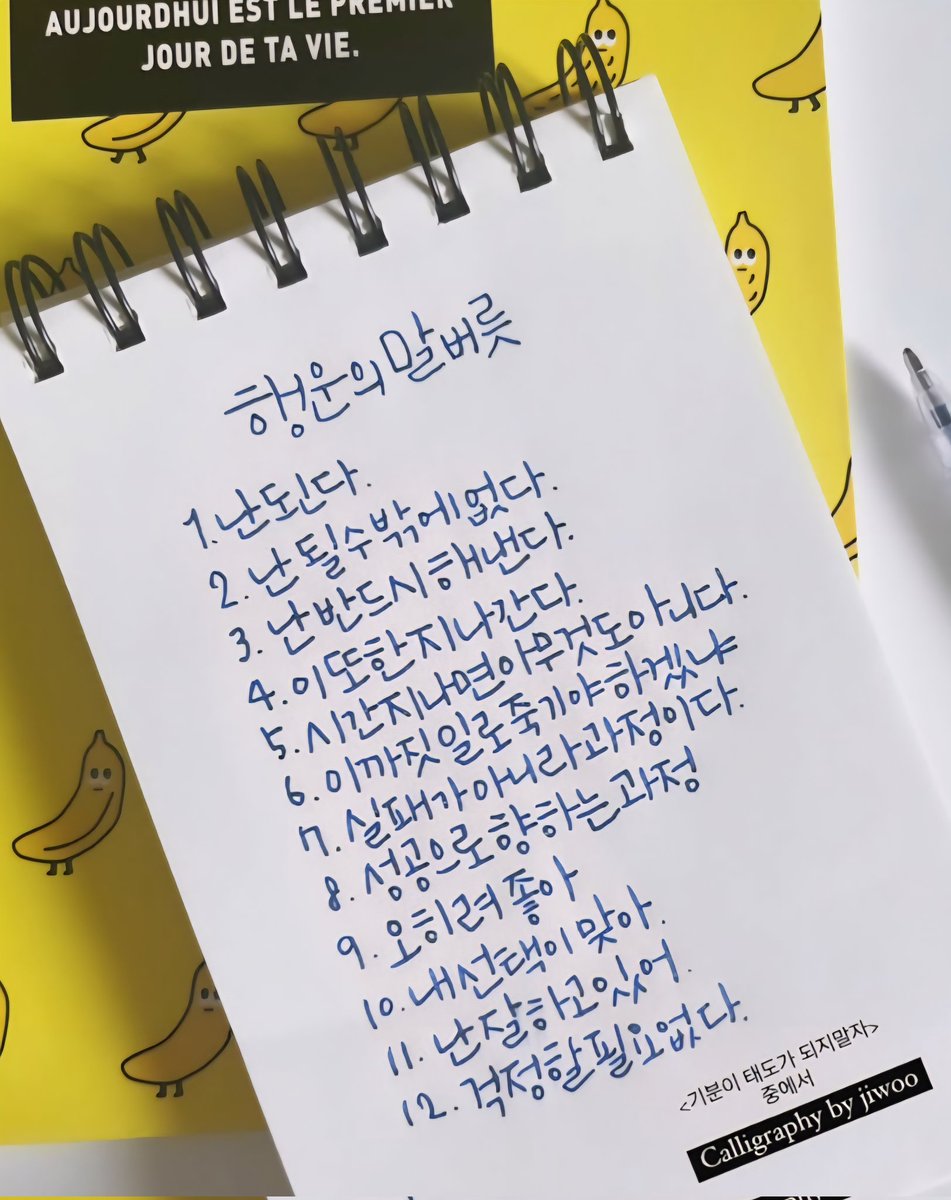 AUJOURDHUI EST LE PREMIER
JOUR DE TA VIE.
행운의 말버릇
1. 난 된다.
2. 난 될 수밖에 없다.
3. 난 반드시 해낸다.
4. 이 또한 지나간다.
5. 시간 지나면 아무것도 아니다.
6. 이까짓 일로 죽기야 하겠냐
7. 실패가 아니라 과정이다.
8. 성공으로 향하는 과정
9. 오히려 좋아
10. 내 선택이 맞아.
11. 난 잘하고 있어.
12. 걱정할 필요 없다.
<기분이 태도가 되지말자>
중에서
Calligraphy by jiwoo